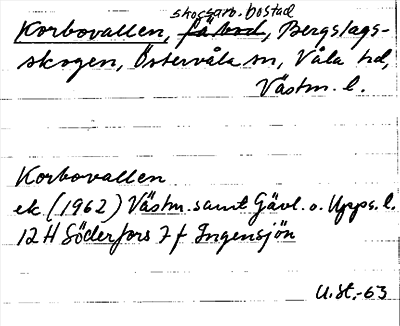 skogsarb.bostad
Korbovallen, fäbod, Bergslags-
skogen, Östervåla sn, Våla hd,
Västm. l.
Korbovallen
ek (1962) Västm. samt Gävl. o. Upps. l.
12 H Söderfors 7 f Ingensjön
U.St.-63